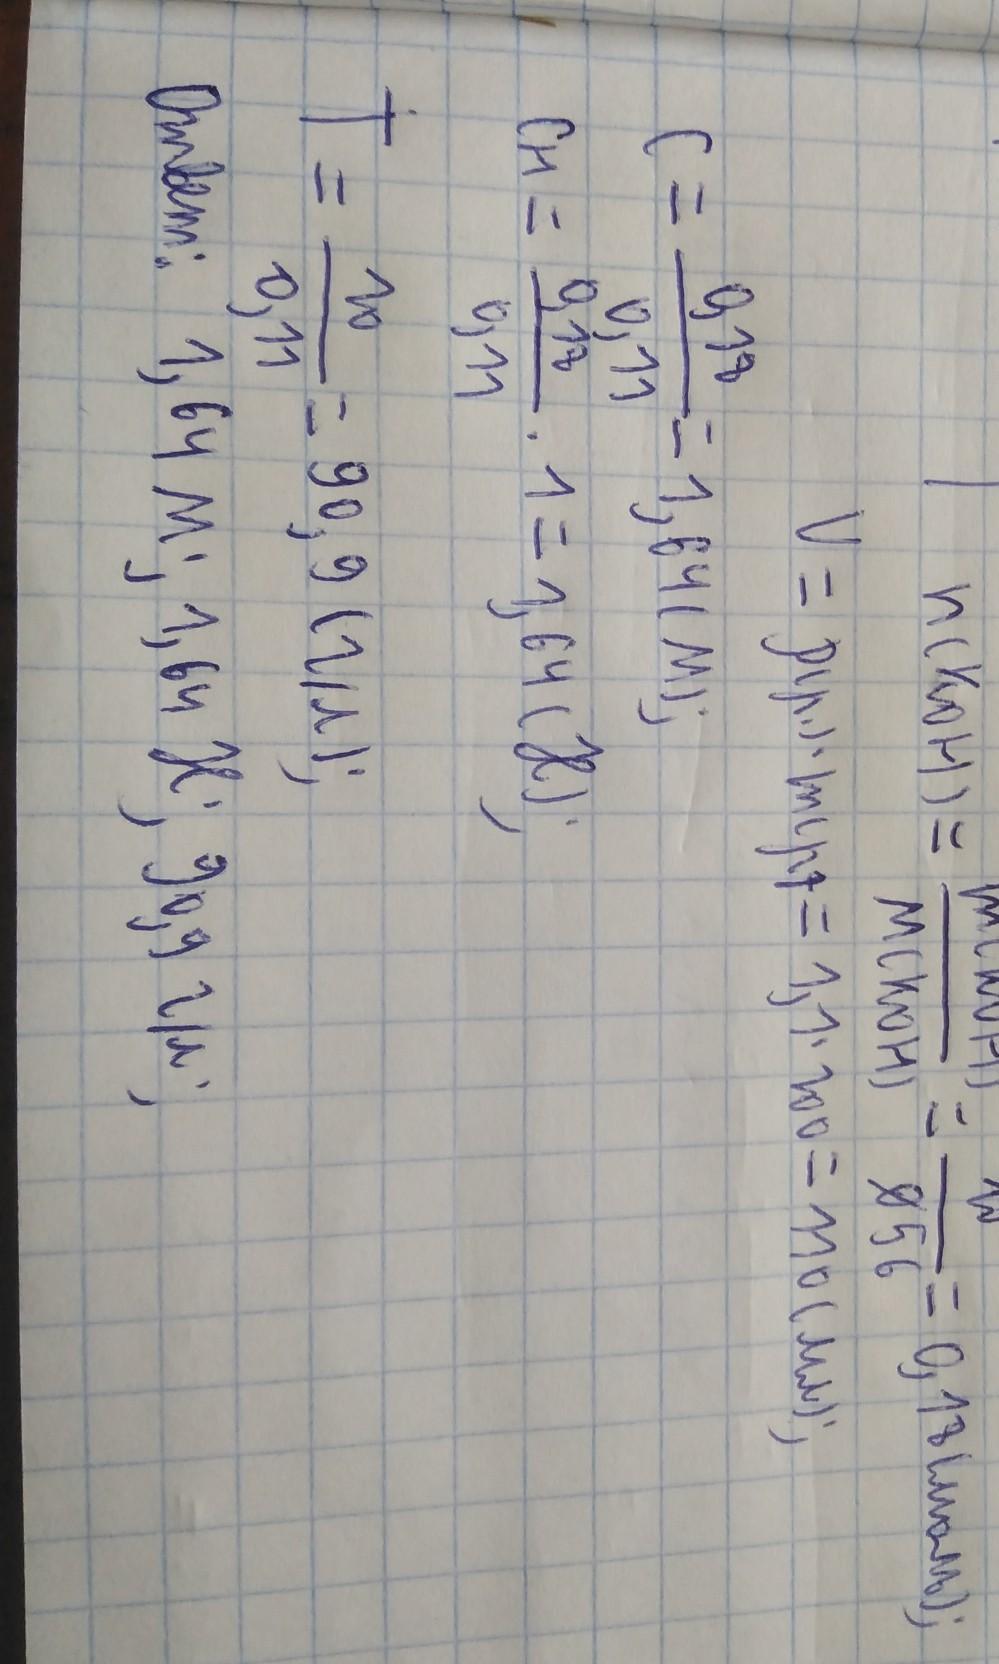 n(KOH) = m(KOH) / M(KOH) = / 56 = 0,18 (моль);
V = p(р) · m(р) = 1,1 · 100 = 110 (мл);
C = 0,18 / 0,11 = 1,64 (M);
Cн = 0,18 / 0,11 · 1 = 1,64 (Н);
T = 10 / 0,11 = 90,9 (г/л);
Ответ: 1,64 M; 1,64 Н; 90,9 г/л;